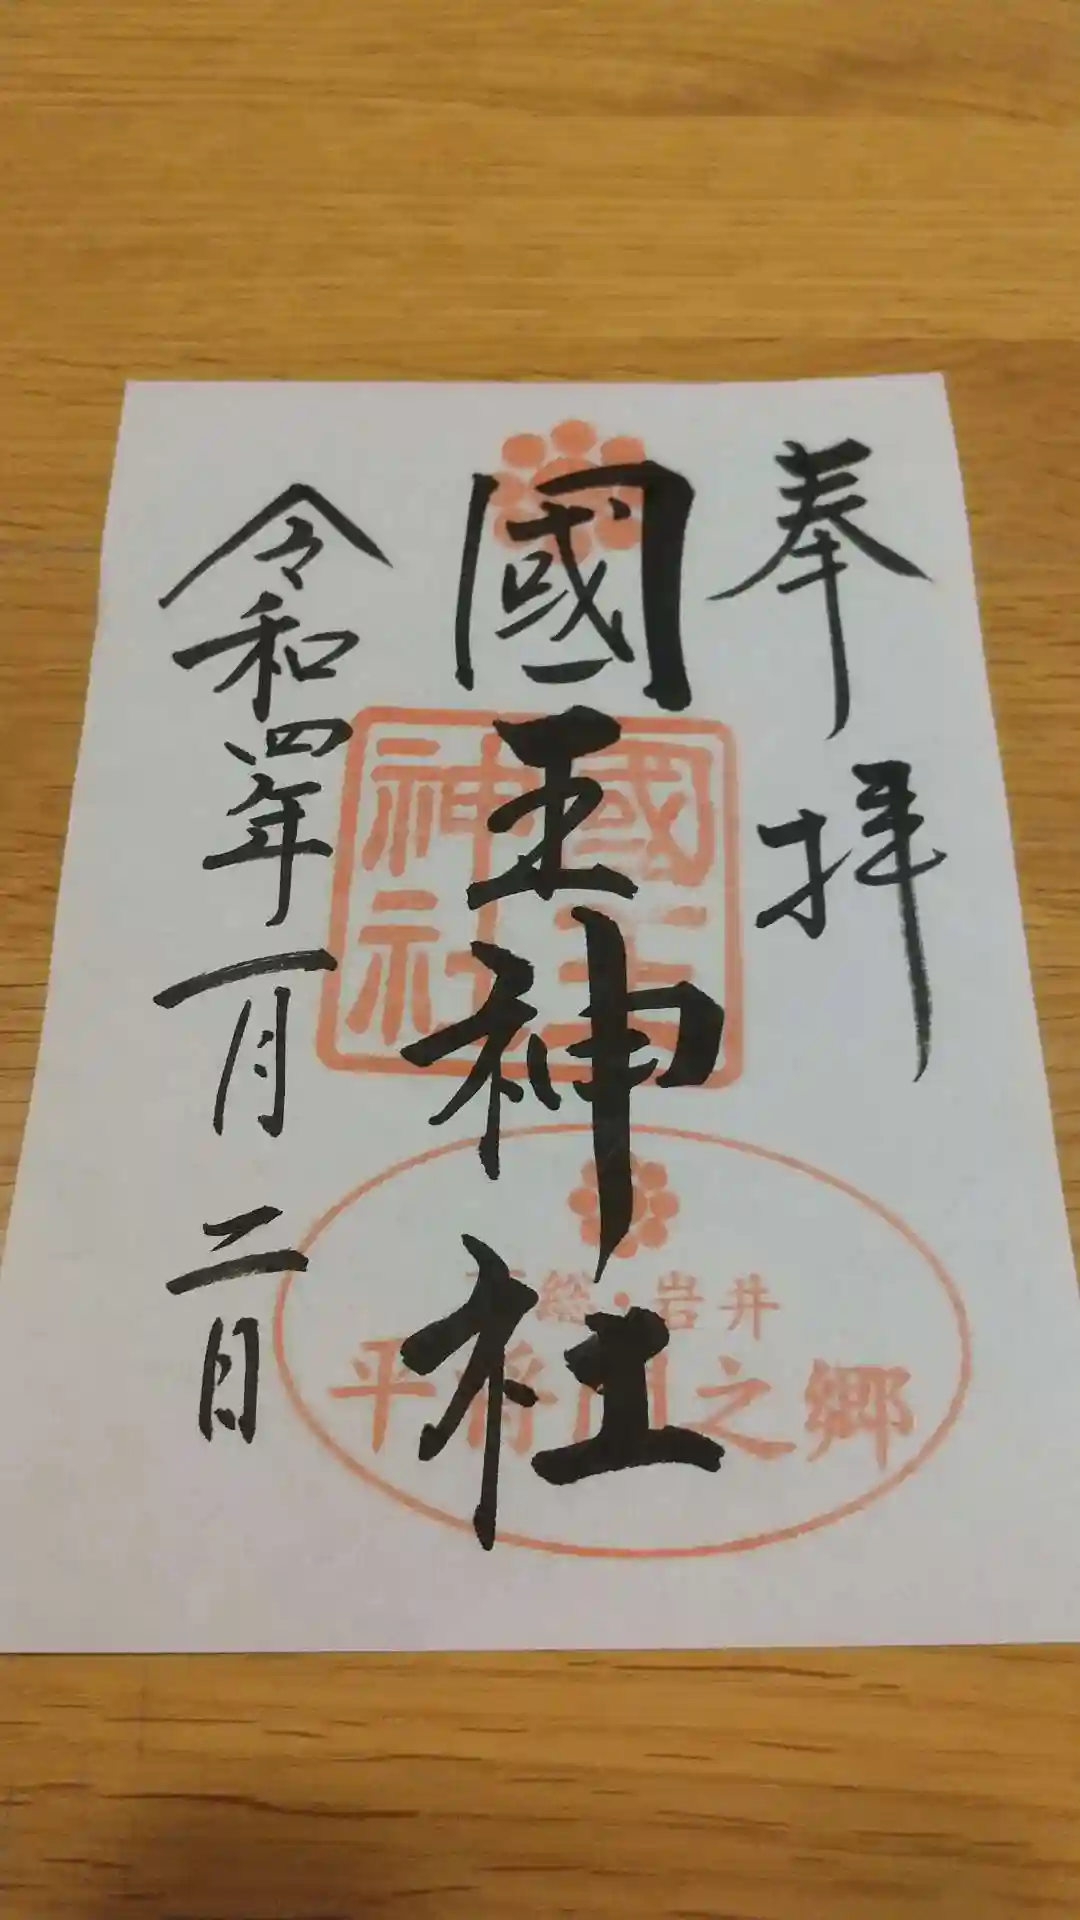 奉拝
國王神社
令和四年一月二日
國王
神社
下総・岩井
平将門之郷